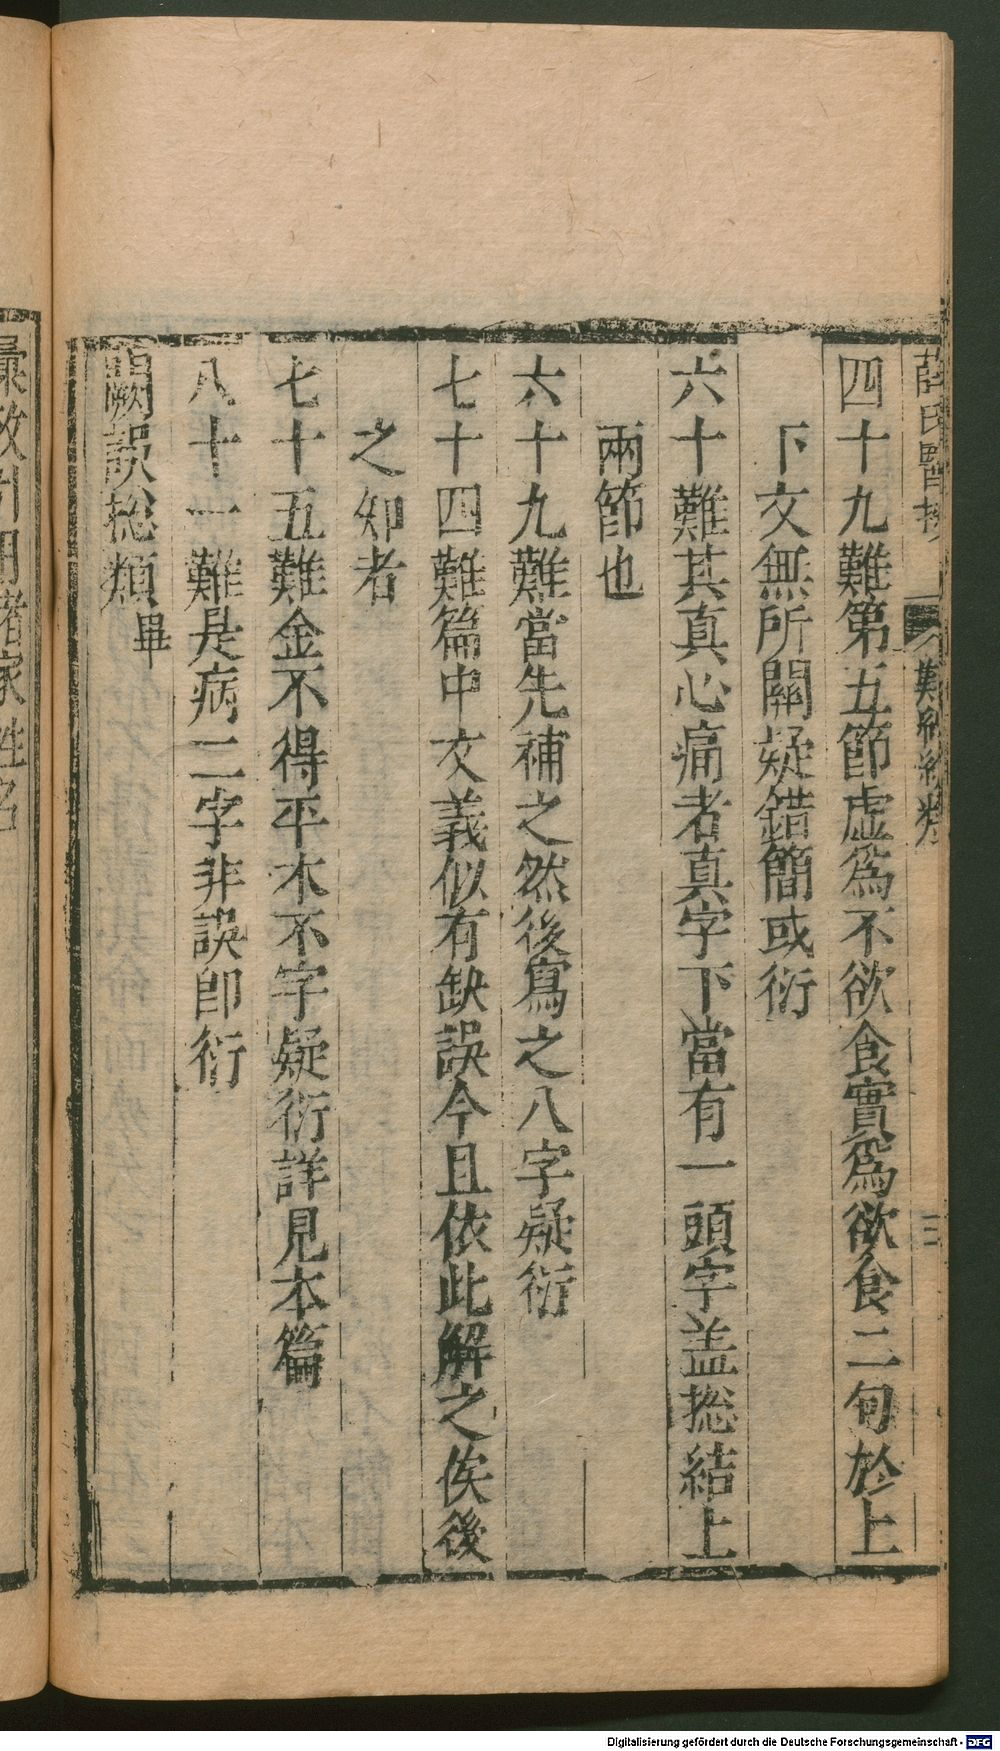 薛氏醫按
難經總類
三
四十九難第五節虛爲不欲食實爲欲食二句於上
下文無所關疑錯簡或衍
六十難其真心痛者真字下當有一頭字盖捴結上
兩節也
六十九難當先補之然後寫之八字疑衍
七十四難篇中文義似有缺誤今且依此解之俟後
之知者
七十五難金不得平木不字疑衍詳見本篇
八十一難是病二字非誤即衍
闕誤捴類畢
彙攷引用諸家姓名
Digitalisierung gefördert durch die Deutsche Forschungsgemeinschaft - DFG